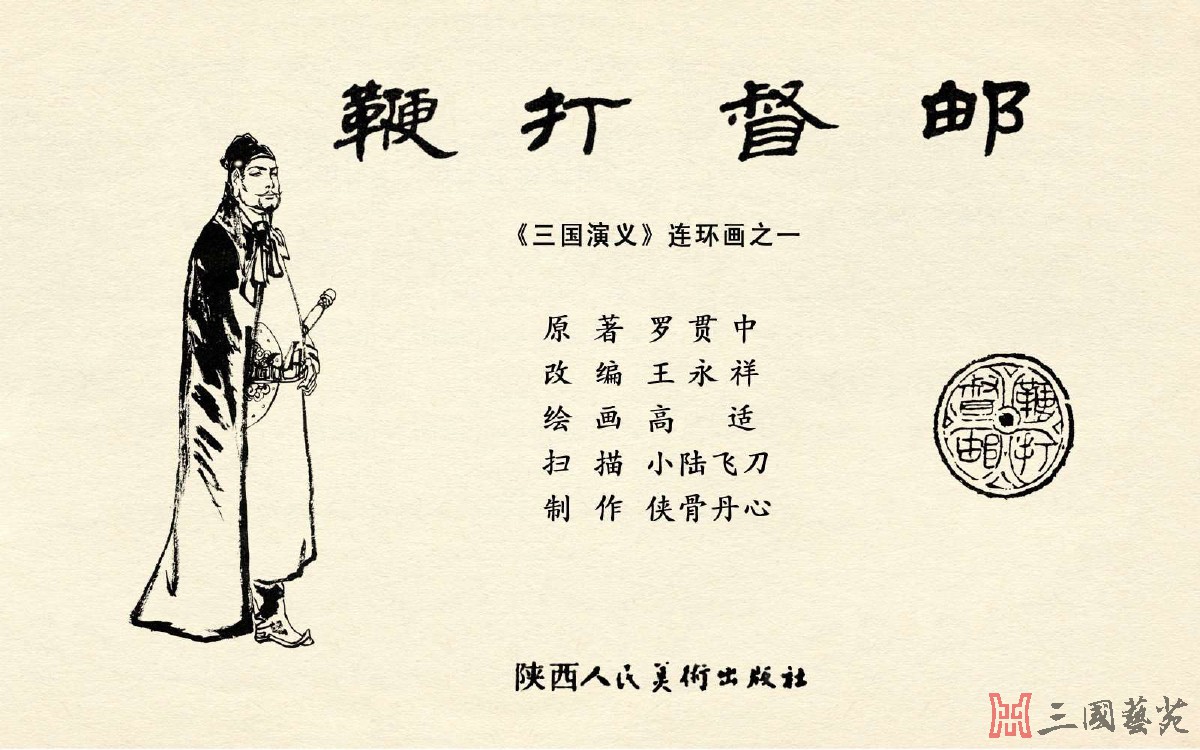 鞭打督邮
《三国演义》连环画之一
原著 罗贯中
改编 王永祥
绘画 高适
扫描 小陆飞刀
制作 侠骨丹心
鞭打督邮
陕西人民美術出版社
三國藝苑